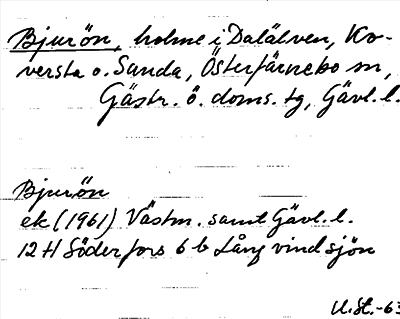 Bjurön, holme i Dalälven, Ko-
versta o. Sanda, Österfärnebo sn,
Gästr. ö. doms. tg, Gävl. l.
Bjurön
ek (1961) Västm. samt Gävl. l.
12 H Söderfors 6 b Långvindsjön
U. St. -63